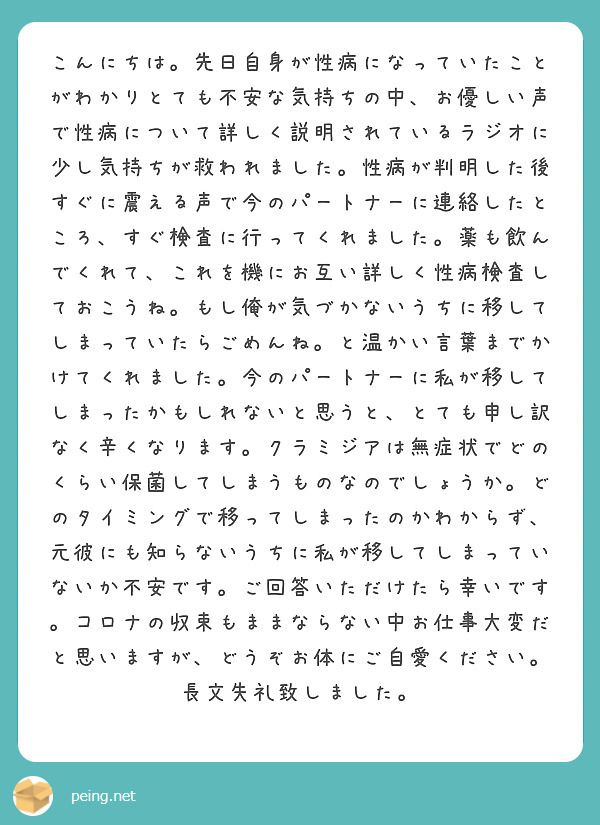 こんにちは。先日自身が性病になっていたこと
がわかりとても不安な気持ちの中、お優しい声
で性病について詳しく説明されているラジオに
少し気持ちが救われました。性病が判明した後
すぐに震える声で今のパートナーに連絡したと
ころ、すぐ検査に行ってくれました。薬も飲ん
でくれて、これを機にお互い詳しく性病検査し
ておこうね。もし俺が気づかないうちに移して
しまっていたらごめんね。と温かい言葉までか
けてくれました。今のパートナーに私が移して
しまったかもしれないと思うと、とても申し訳
なく辛くなります。クラミジアは無症状でどの
くらい保菌してしまうものなのでしょうか。ど
のタイミングで移ってしまったのかわからず、
元彼にも知らないうちに私が移してしまってい
ないか不安です。ご回答いただけたら幸いです
。コロナの収束もままならない中お仕事大変だ
と思いますが、どうぞお体にご自愛ください。
長文失礼致しました。
peing.net